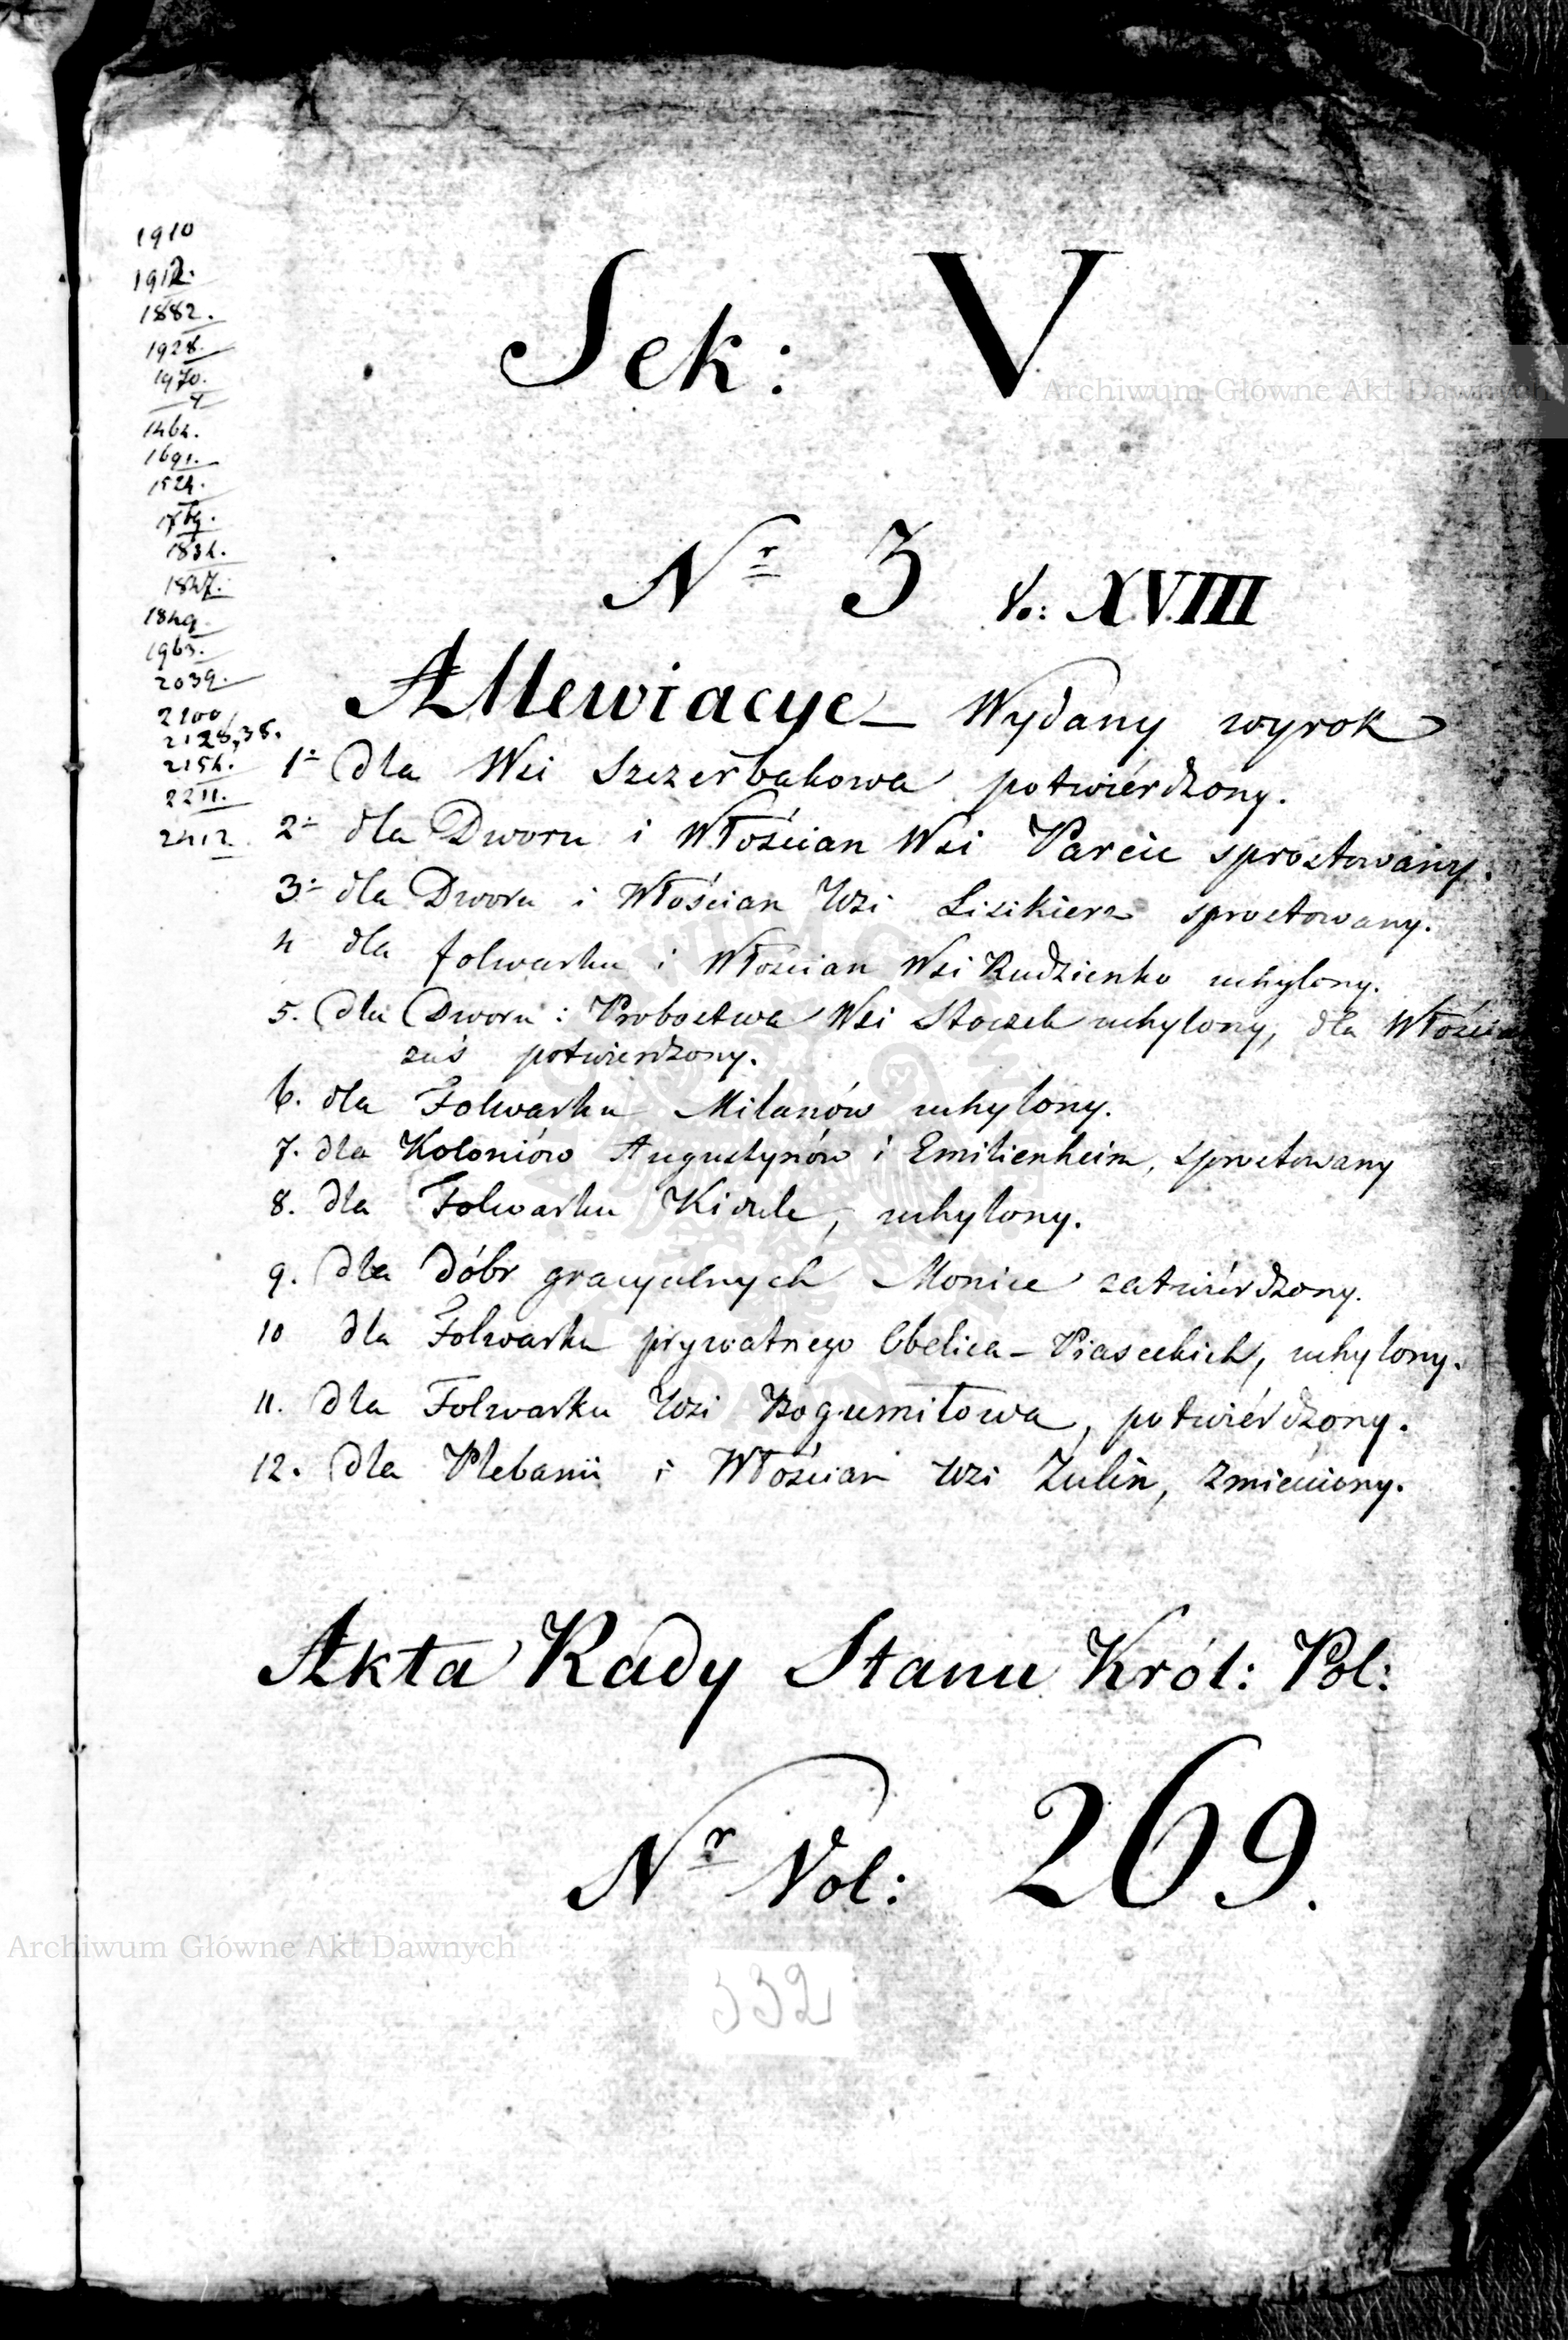 1910
1912.
1882.
1928.
1970.
4
1464.
1691.
1524.
1769.
1834.
1847.
1849.
1963.
2039.
2100
2128,38.
2154.
2211.
2412
Sek: V
Nr 3 V.: XVIII
Allewiacye – Wydany wyrok
1- dla Wsi Szczerbakowa potwiérdzony.
2- dla Dworu i Włościan Wsi Parcic sprostowany.
3- dla Dworu i Włościan Wsi Lisikierz sprostowany.
4 dla folwarku i Włościan Wsi Rudzienko uchylony.
5. dla Dworu i Probostwa Wsi Stoczek uchylony, dla Włościan
zaś potwierdzony.
6. dla Folwarku Milanów uchylony.
7. dla Koloniów Augustynów i Emilienheim, sprostowany
8. dla Folwarku Kidule, uchylony.
9. dla dóbr gracyalnych Monice zatwiérdzony.
10 dla Folwarku prywatnego Obelica – Piaseckich, uchylony.
11. dla Folwarku Wsi Bogumiłowa, potwiérdzony.
12. dla Plebanii i Włościan Wsi Żulin, zmieniony.
Akta Rady Stanu Król: Pol:
Nr Vol: 269.
332
Archiwum Główne Akt Dawnych
Archiwum Główne Akt Dawnych